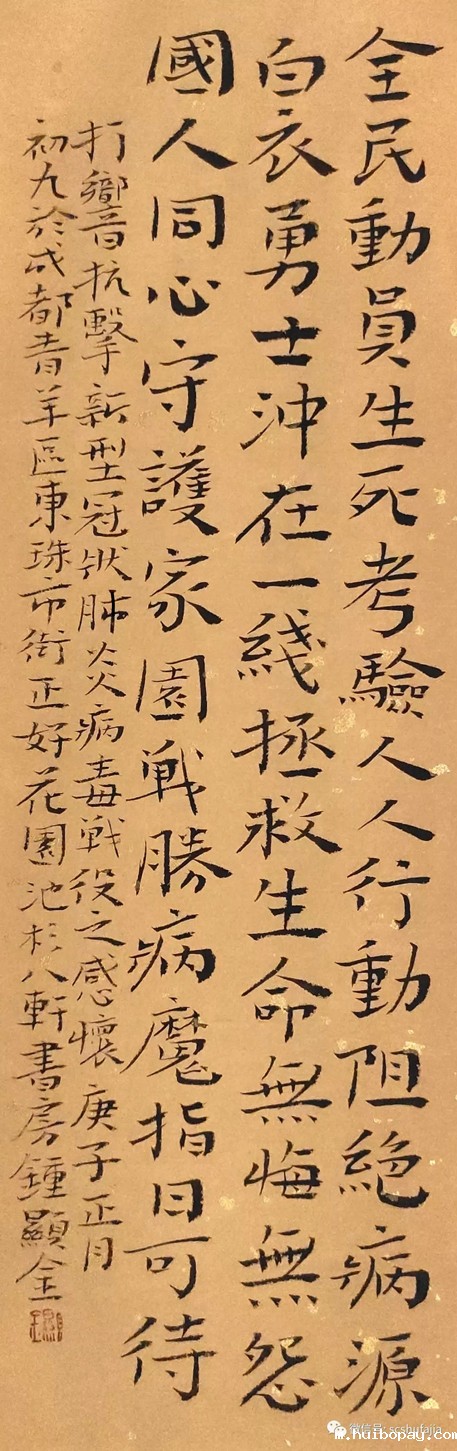 全民動員生死考驗人人行動阻絕病源
白衣勇士沖在一綫拯救生命無悔無怨
國人同心守護家園戰勝病魔指日可待
打響抗擊新型冠狀肺炎病毒戰役之感懷庚子正月
初九於成都青羊區東珠市街正好花園池杉八軒書房鍾顯金
微信号: scshufajia
m.huibopay.com